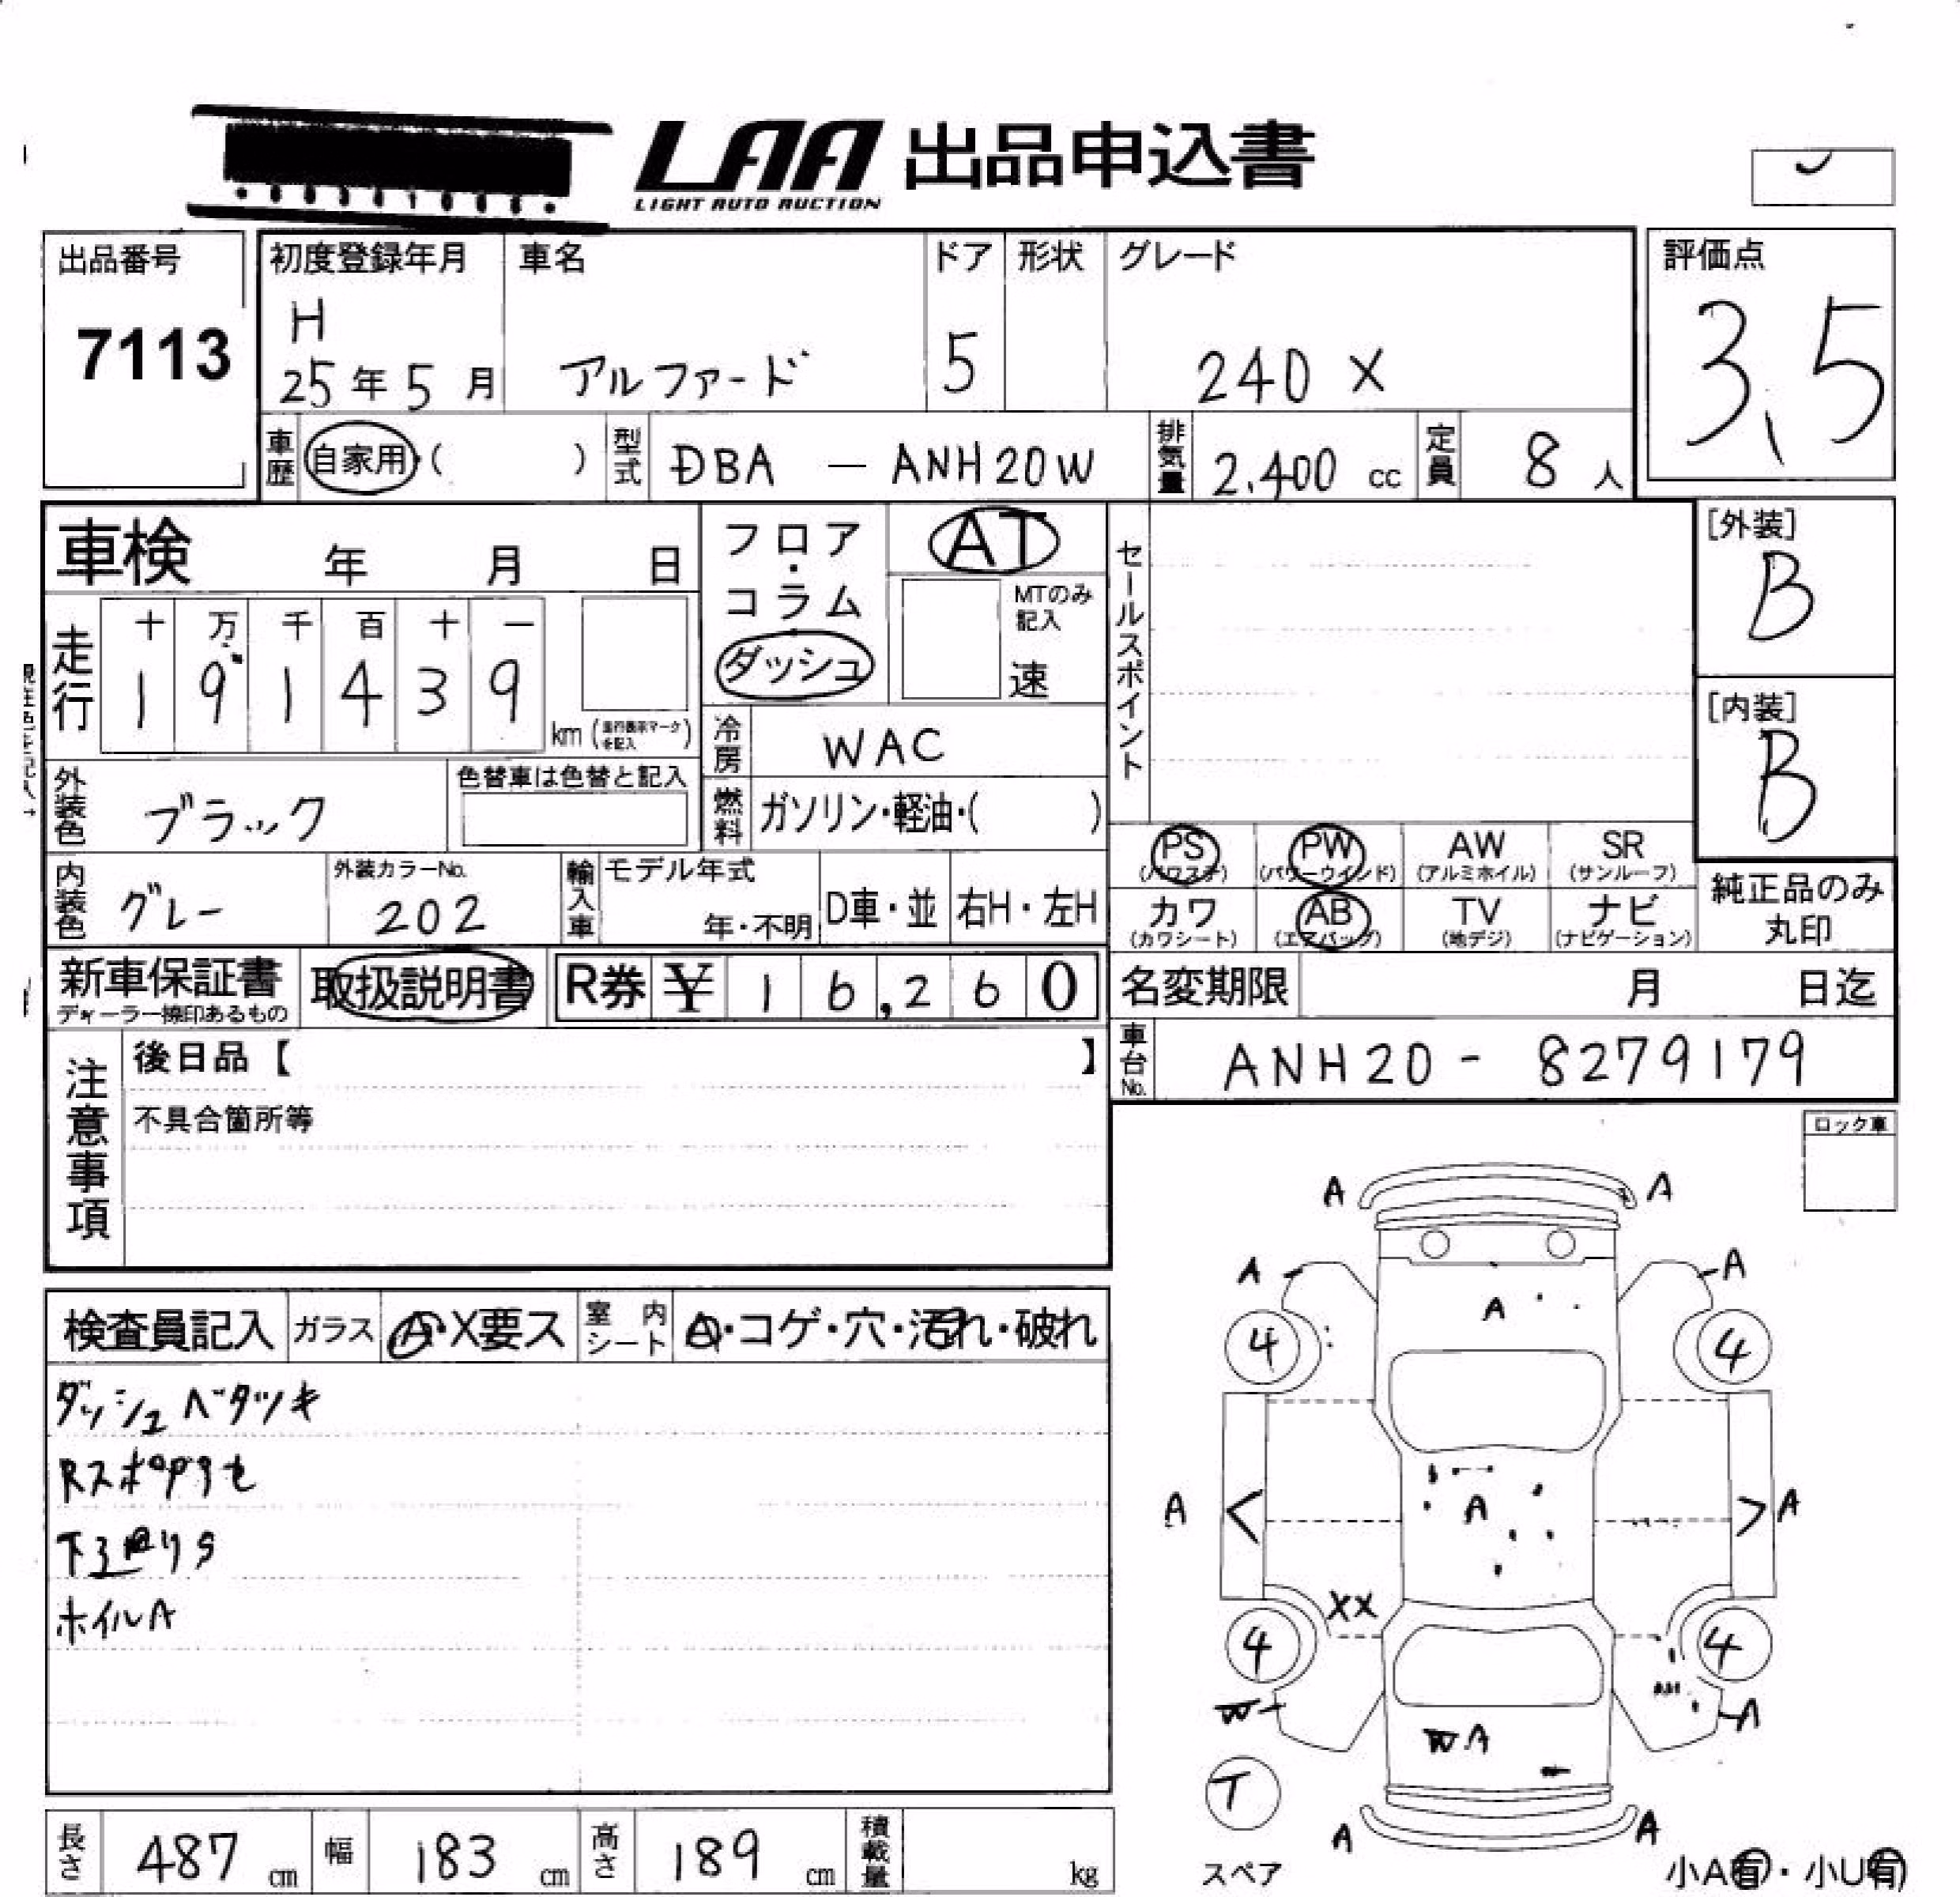 LAA 出品申込書
LIGHT AUTO AUCTION
出品番号
7113
初度登録年月
H
25年5月
車名
アルファード
ドア
5
形状
グレード
240 X
評価点
3.5
車歴 自家用・( )
型式 DBA — ANH20W
排気量 2,400 cc
定員 8人
車検 年 月 日
フロア・コラム
ダッシュ
AT
MTのみ記入
速
セールスポイント
[外装]
B
[内装]
B
走行
十 万 千 百 十 一
1 9 1 4 3 9
km (走行表示マークを記入)
冷房 WAC
外装色 ブラック
色替車は色替と記入
燃料 ガソリン・軽油・( )
PS (パワステ)
PW (パワーウインド)
AW (アルミホイル)
SR (サンルーフ)
カワ (カワシート)
AB (エアバッグ)
TV (地デジ)
ナビ (ナビゲーション)
純正品のみ
丸印
内装色 グレー
外装カラーNo.
202
輸入車
モデル年式
年・不明
D車・並
右H・左H
新車保証書
ディーラー捺印あるもの
取扱説明書
R券 ¥ 1 6,2 6 0
名変期限 月 日迄
車台No. ANH20 - 8279179
注意事項
後日品【 】
不具合箇所等
ロック車
検査員記入
ガラス A・X要ス
室内シート A・コゲ・穴・汚れ・破れ
ダッシュベタツキ
ホイルA
A A
A A
A
4 4
A A
A
XX
4 4
W A
W A
T
スペア
A A
小A有・小U有
長さ 487 cm
幅 183 cm
高さ 189 cm
積載量 kg